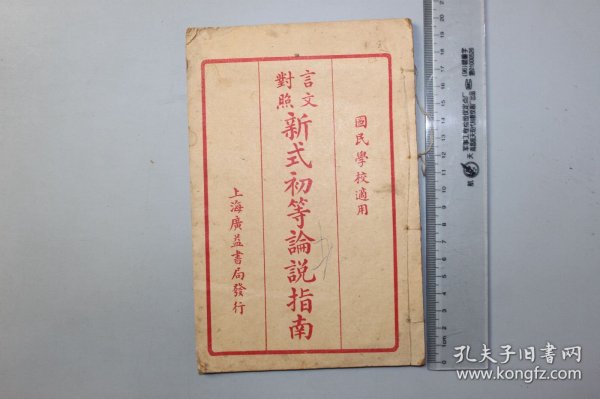 國民學校適用
言文
對照
新式初等論説指南
上海廣益書局發行
孔夫子旧书网
www.kongfz.com